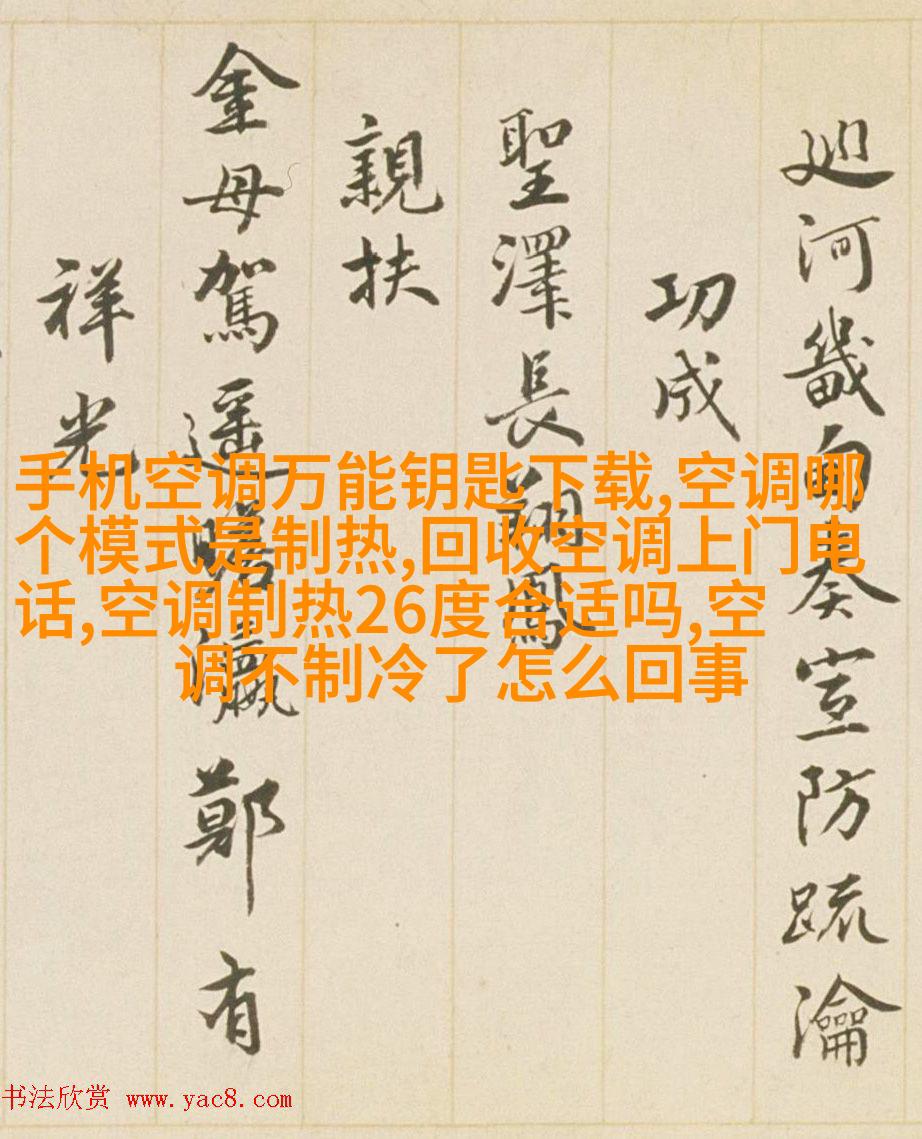 廵河畿甸奏宣防疏瀹
功成
聖澤長翔鳳
親扶
金母駕遥瞻瀛鄭有
祥光
手机空调万能钥匙下载,空调哪
个模式是制热,回收空调上门电
话,空调制热26度合适吗,空
调不制冷了怎么回事
书法欣赏 www.yac8.com